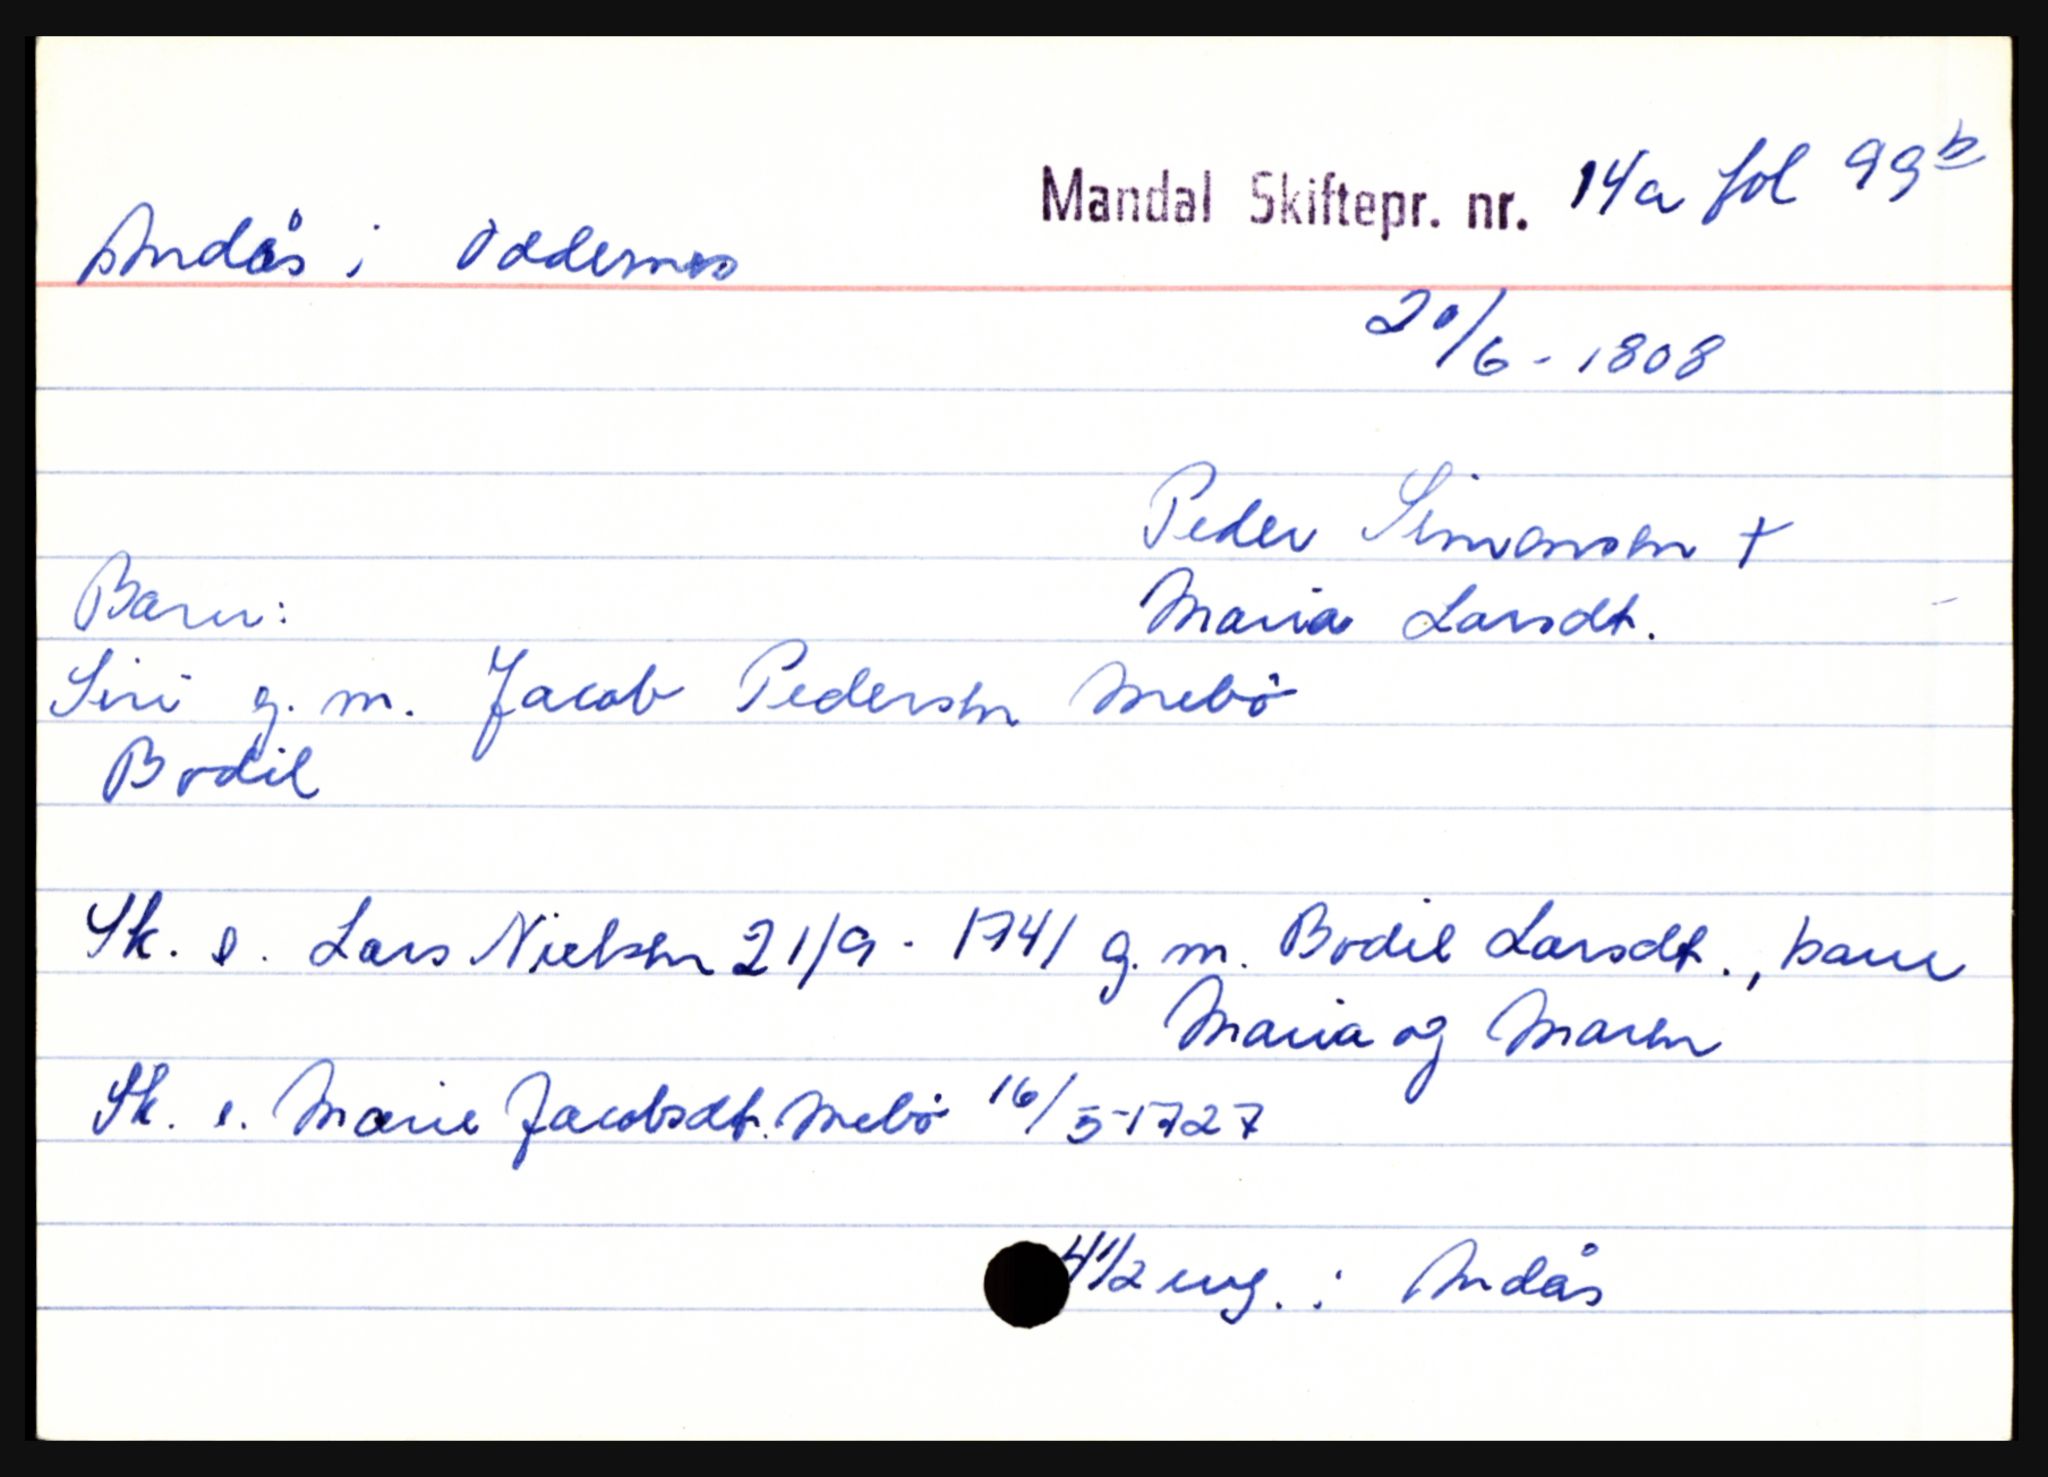 Mandal Skiftepr. nr. 14a fol 99b
Andås i Oddernes
20/6 - 1808
Peder Simonsen +
Barn:
Maria Larsdt.
Siri g. m. Jacob Pedersen Mebö
Bodil
Sk. e. Lars Nielsen 21/9 - 1741 g. m. Bodil Larsdt., barn
Maria og Maren
Sk. e. Marie Jacobsdt. Mebö 16/5-1727
4 1/2 eng. i Andås